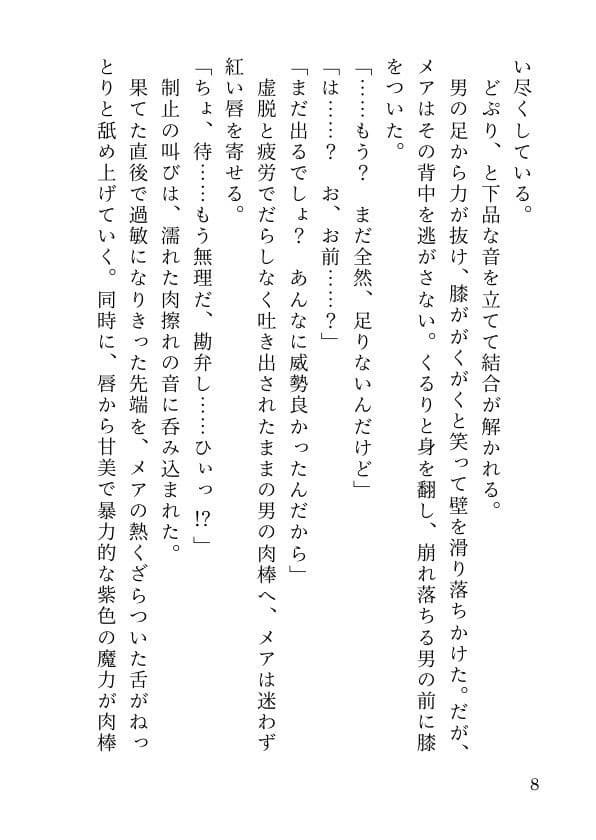 い尽くしている。
　どぷり、と下品な音を立てて結合が解かれる。
　男の足から力が抜け、膝ががくがくと笑って壁を滑り落ちかけた。だが、
メアはその背中を逃がさない。くるりと身を翻し、崩れ落ちる男の前に膝
をついた。
「……もう？　まだ全然、足りないんだけど」
「は……？　お、お前……？」
「まだ出るでしょ？　あんなに威勢良かったんだから」
　虚脱と疲労でだらしなく吐き出されたままの男の肉棒へ、メアは迷わず
紅い唇を寄せる。
「ちょ、待……もう無理だ、勘弁し……ひぃっ!?」
　制止の叫びは、濡れた肉擦れの音に呑み込まれた。
　果てた直後で過敏になりきった先端を、メアの熱くざらついた舌がねっ
とりと舐め上げていく。同時に、唇から甘美で暴力的な紫色の魔力が肉棒
8